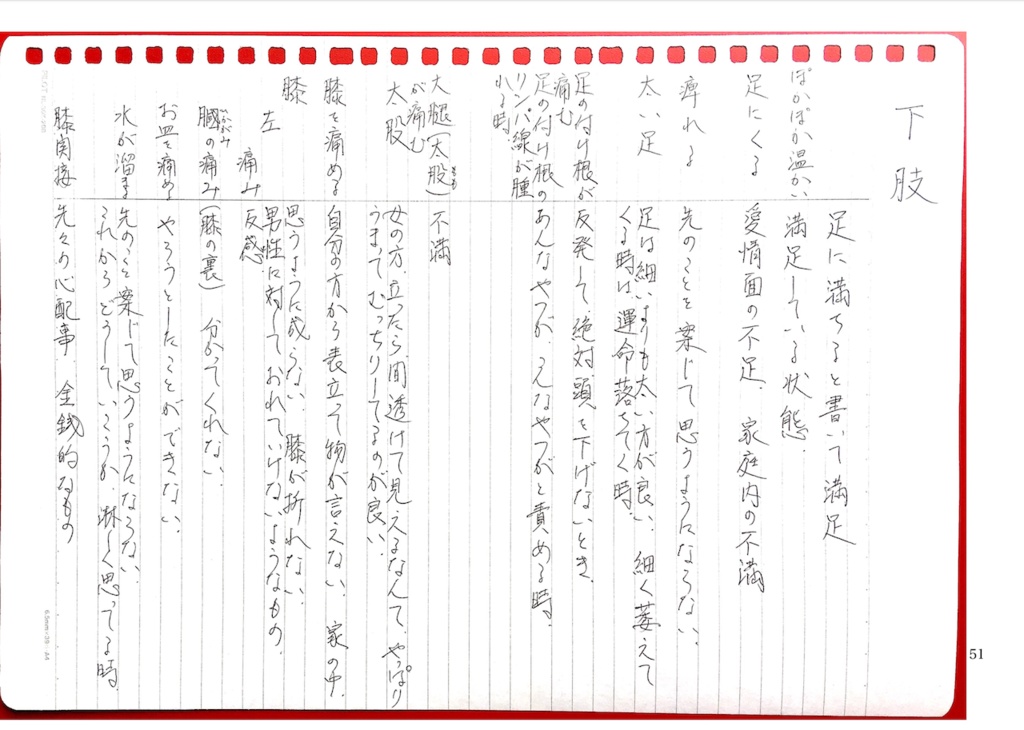 下肢
足に満ちると書いて満足
ぽかぽか温かい 満足している状態.
足にくる 愛情面の不足、家庭内の不満
痺れる 先のことを案じて思うようにならない.
太い足 足は細いよりも太い方が良い. 細く萎えて
くる時は運命落ちてく時.
足の付け根が 反発して、絶対頭を下げないとき.
痛む
足の付け根の あんなやつが、こんなやつがと責める時.
リンパ線が腫
れる時
大腿(太股) 不満
もも
が痛む
太股 女の方、立ったら、間透けて見えるなんて、やっぱり
うまってむっちりしてるのが良い.
膝を痛める 自分の方から表立って物が言えない. 家の中.
膝 思うように成らない. 膝が折れない.
左 男性に対しておれていけないようなもの.
痛み 反感.
膕の痛み(膝の裏) 分かってくれない.
ひかがみ
お皿を痛める やろうとしたことができない.
水が溜まる 先のこと案じて思うようにならない.
これからどうしていこうか、淋しく思ってる時.
膝関接 先々の心配事 金銭的なもの
51